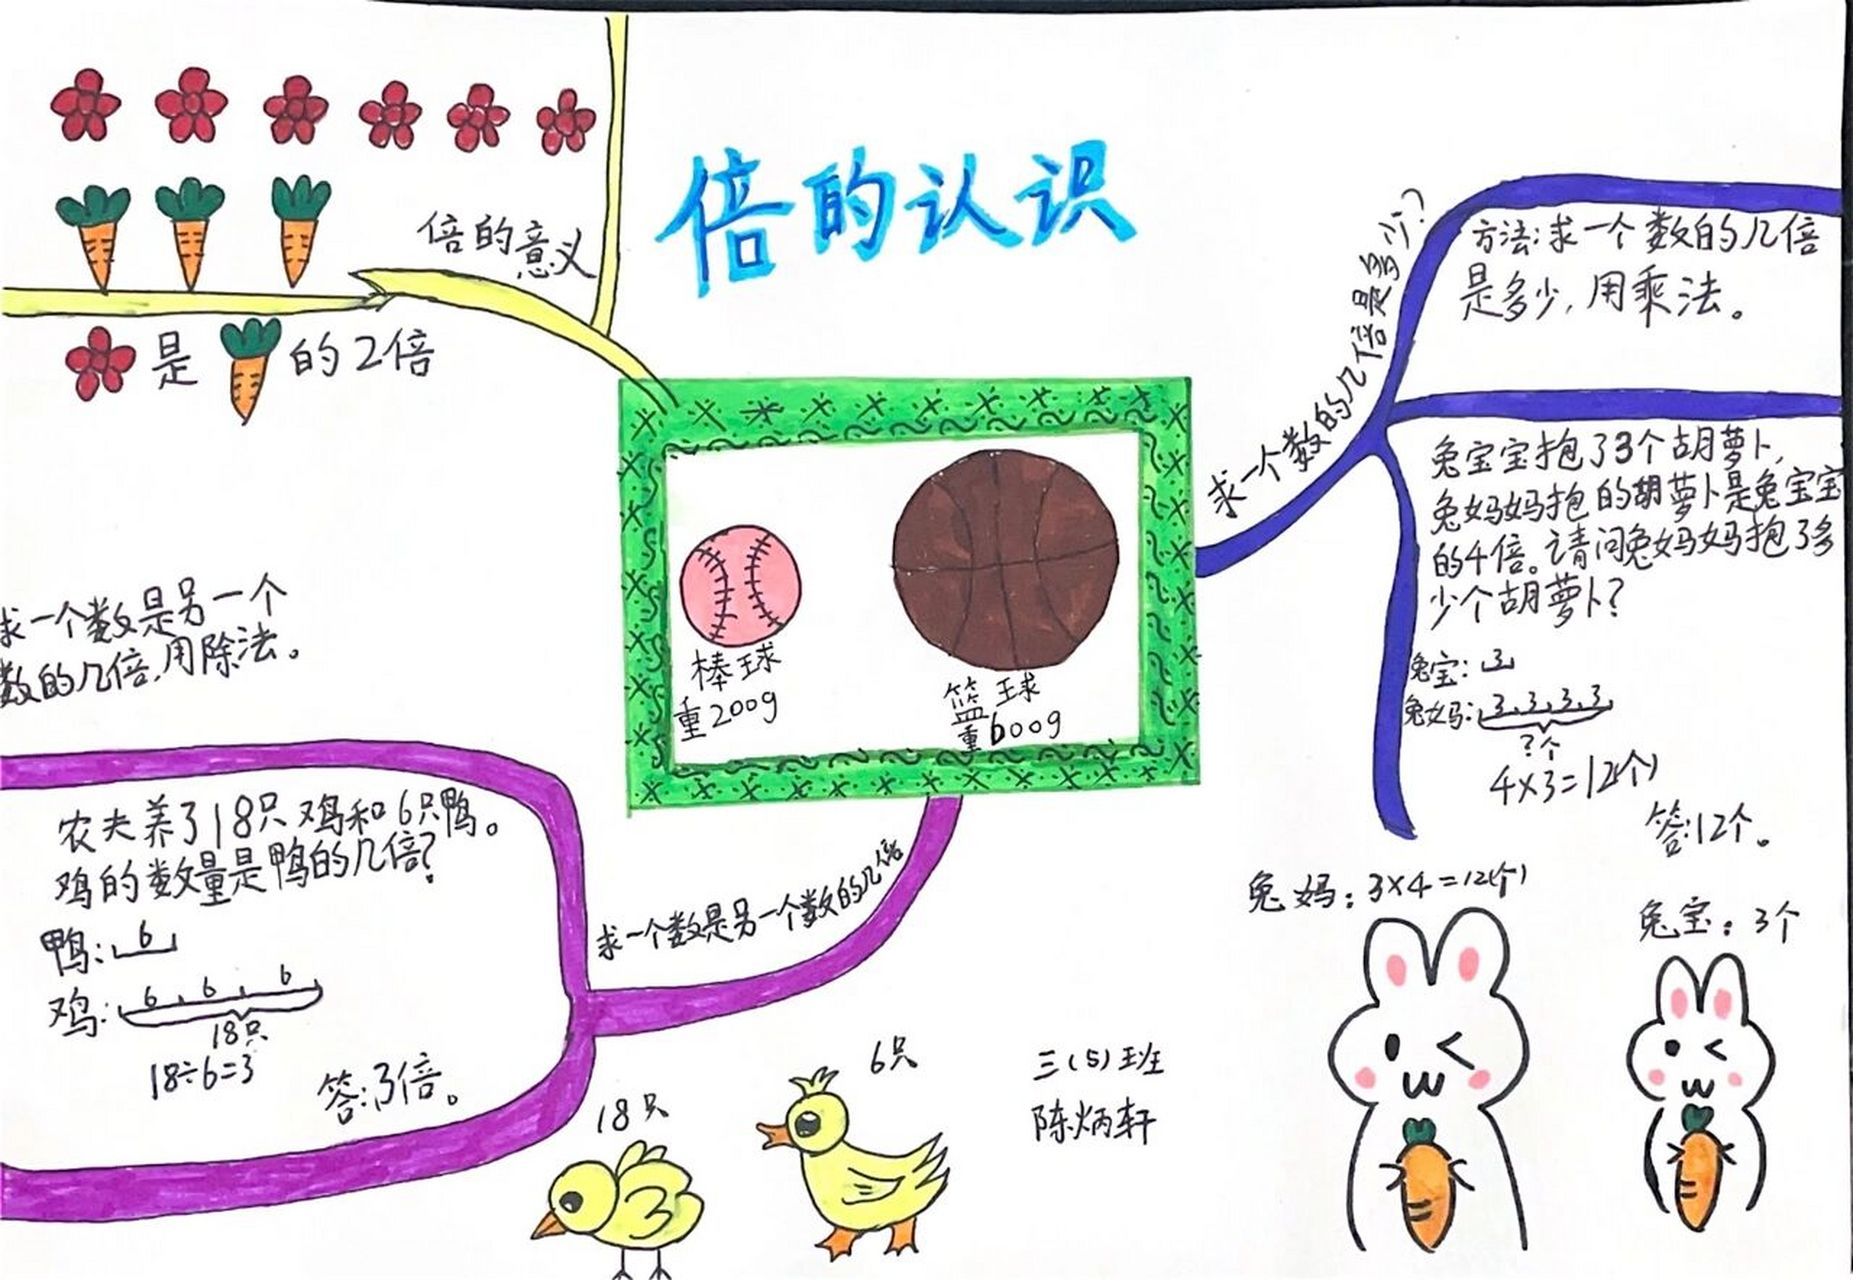 倍的认识
倍的意义
是
的2倍
棒球
重200g
篮球
重600g
求一个数的几倍是多少?
方法:求一个数的几倍
是多少,用乘法。
兔宝宝抱了3个胡萝卜,
兔妈妈抱的胡萝卜是兔宝宝
的4倍。请问兔妈妈抱了多
少个胡萝卜?
兔宝: 3
兔妈: 3 3 3 3
?个
4×3=12(个)
答:12个。
兔妈:3×4=12(个)
兔宝:3个
求一个数是另一个
数的几倍,用除法。
求一个数是另一个数的几倍
农夫养了18只鸡和6只鸭。
鸡的数量是鸭的几倍?
鸭: 6
鸡: 6 6 6
18只
18÷6=3
答:3倍。
18只
6只
三(5)班
陈炳轩